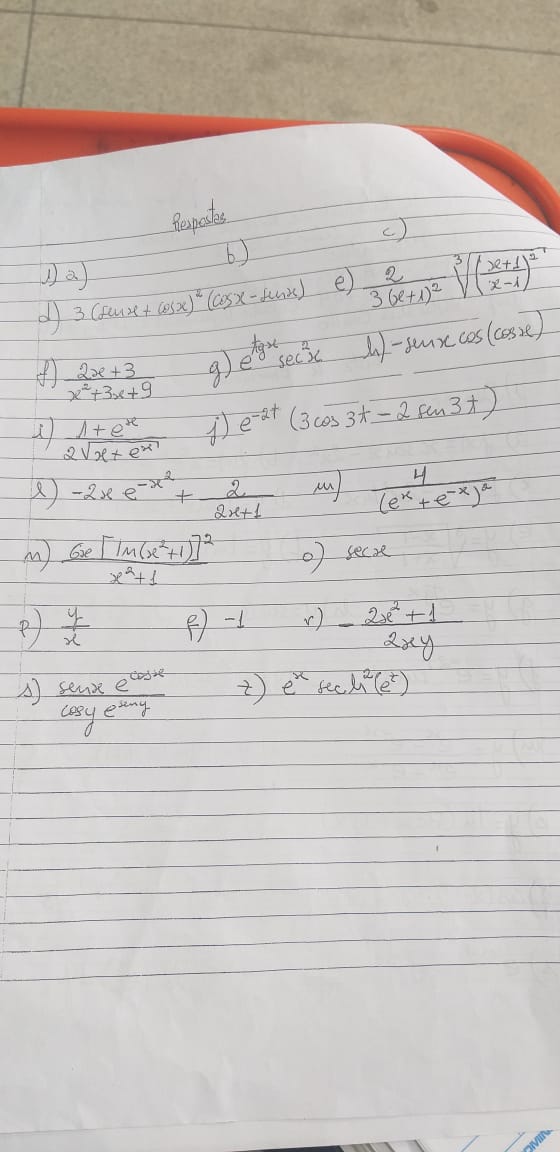 Respostas
1) a) b) c)
d) 3 (senx + cosx)² (cosx - senx) e) 2/(3(x+1)²) ∛((x+1)/(x-1))²
f) (2x+3)/(x²+3x+9) g) e^tgx sec²x h) -senx cos(cosx)
i) (1+e^x)/(2√(x+e^x)) j) e^-2t (3cos3t - 2sen3t)
l) -2x e^-x² + 2/(2x+1) m) 4/(e^x + e^-x)²
n) 6x [ln(x²+1)]²/(x²+1) o) secx
p) y/x q) -1 r) - (2x²+1)/(2xy)
s) (senx e^cosx)/(cosy e^seny) t) e^x sech²(e^t)